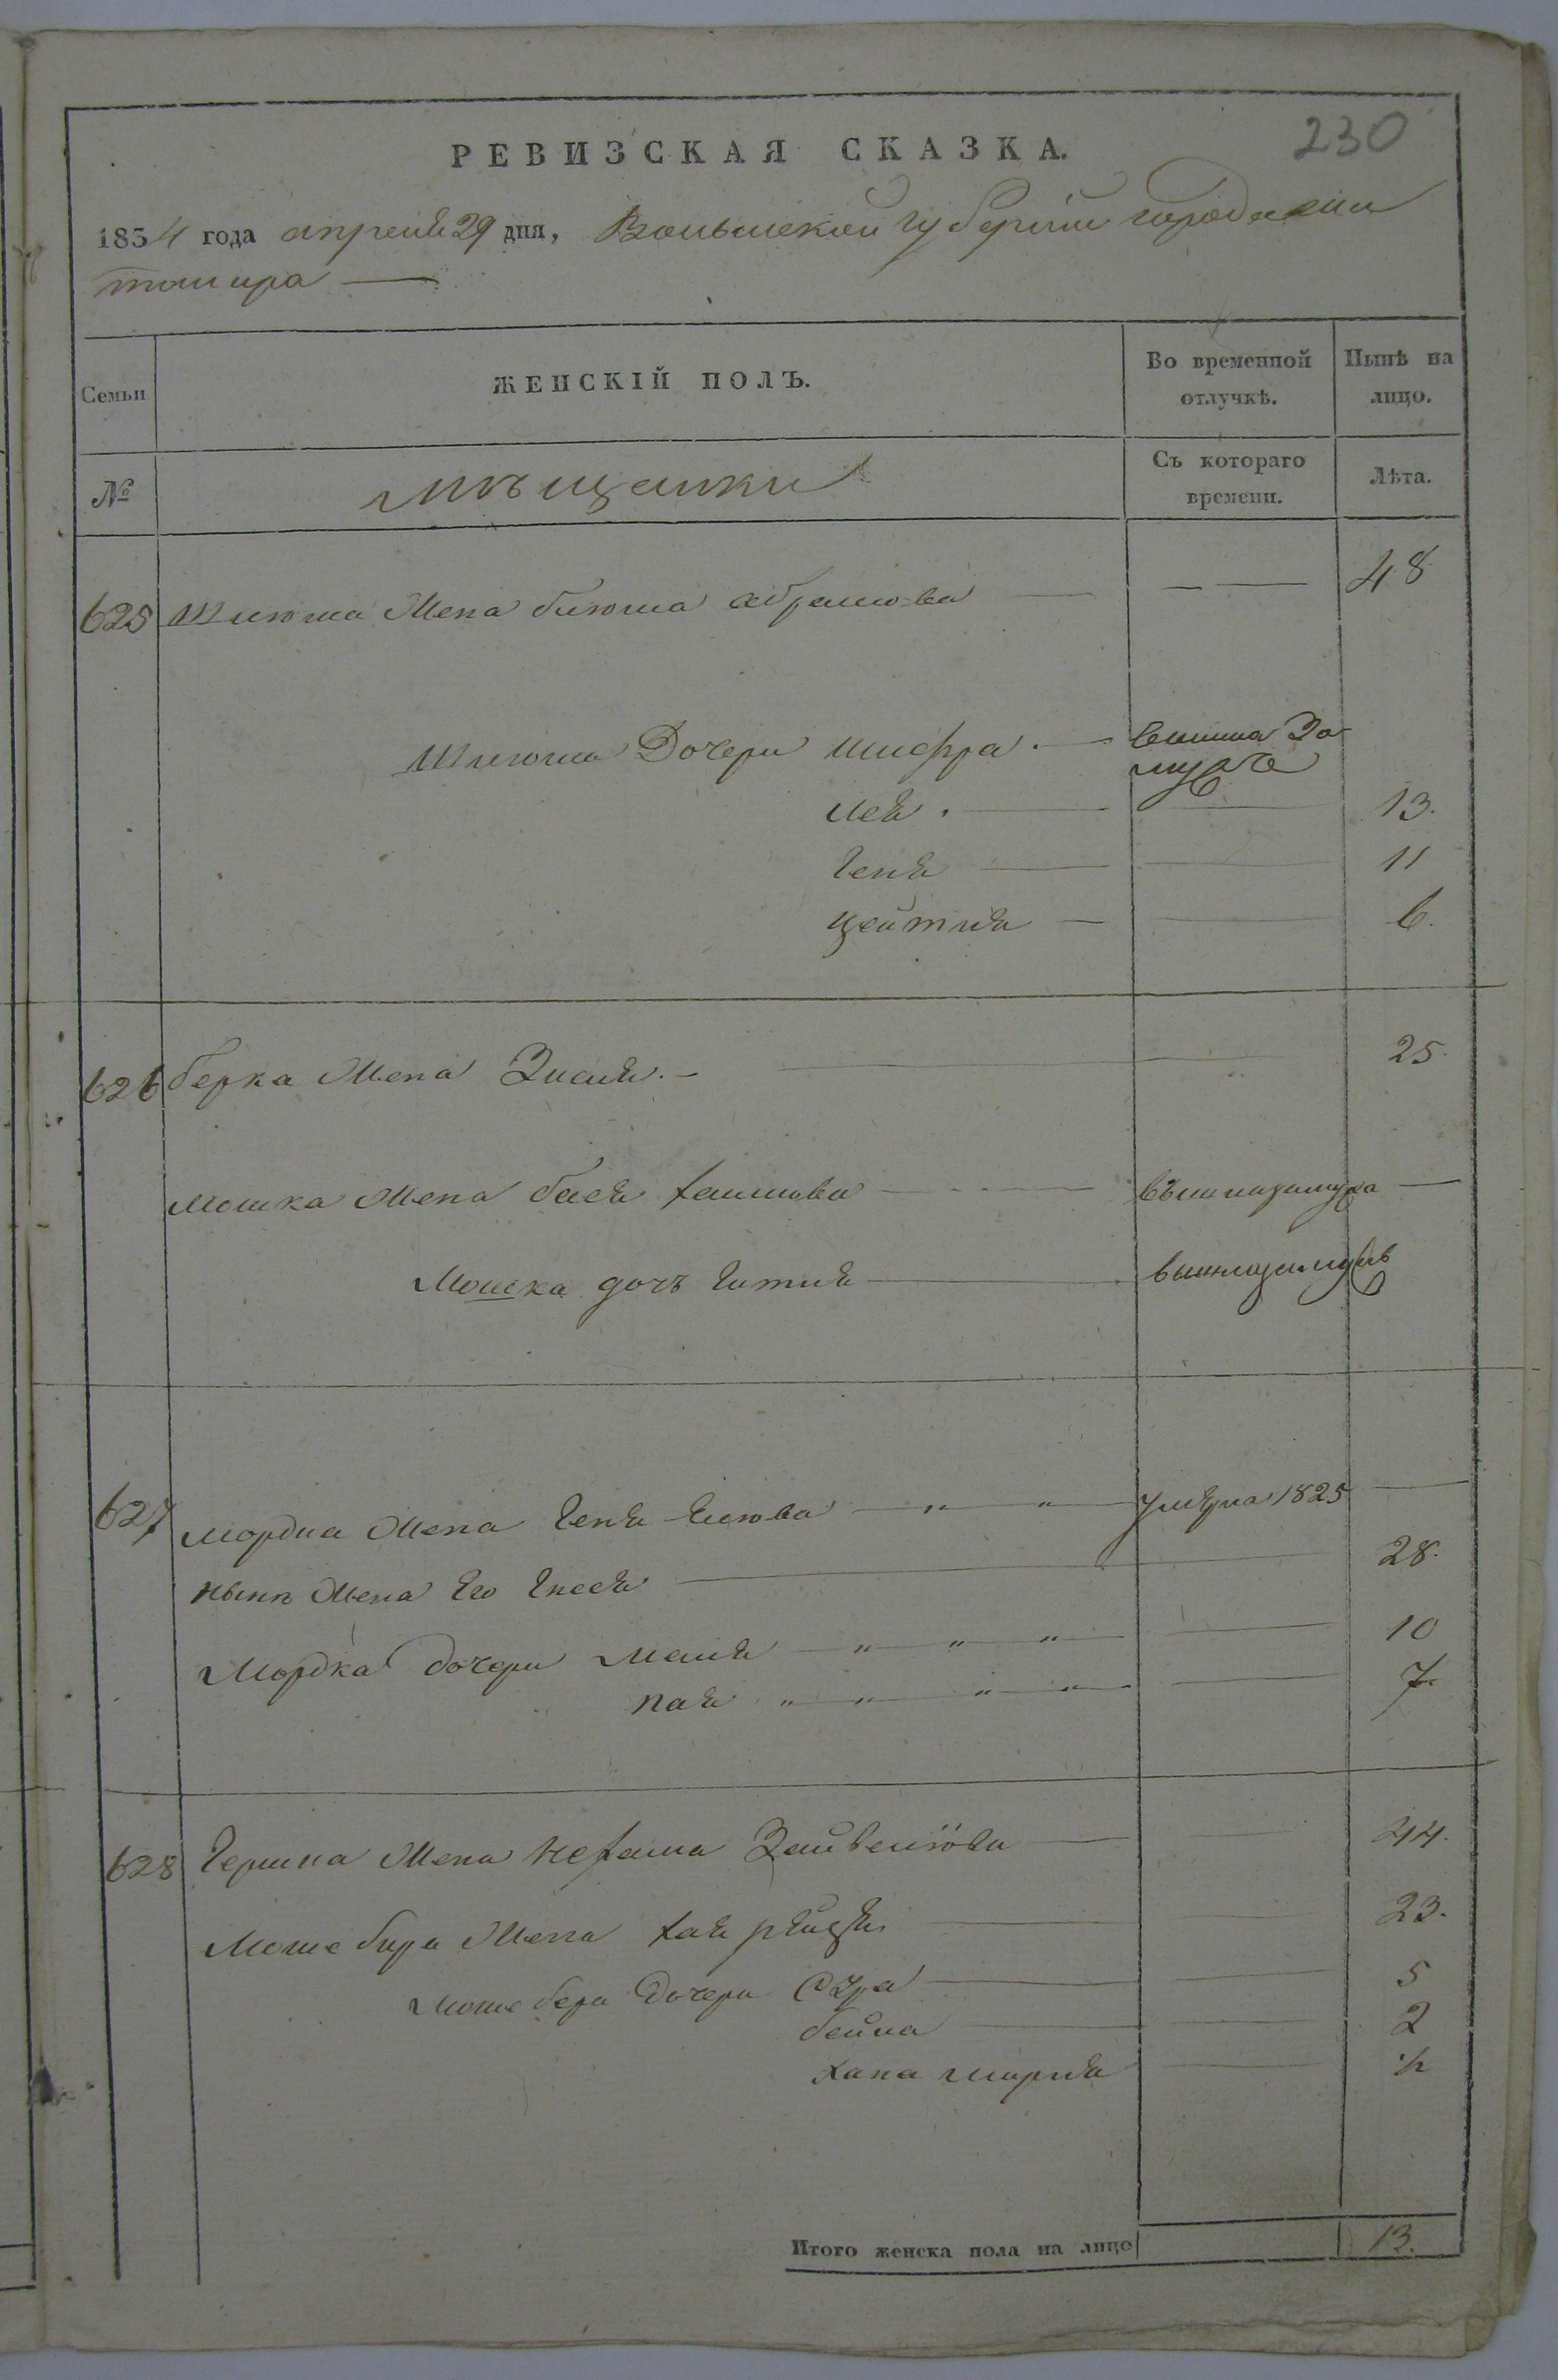 230
РЕВИЗСКАЯ СКАЗКА.
1834 года апреля 29 дня, Волынской губернiи города жи
томира
Семьи
ЖЕНСКIЙ ПОЛЪ.
Во временной отлучкѣ.
Нынѣ на лицо.
№
мѣщанки
Съ котораго времени.
Лѣта.
625 Шлиома Жена блюма абрамова 48
Шлиома Дочери шифра вышла За
мужъ
лея 13.
геня 11
цейтля 6.
626 берка Жена Зисля 25.
мошка Жена бася хаимова вышла замужъ
Мошка дочь гитля вышла замужъ
627 мордка Жена геня умерла 1825
нынѣ Жена его гнеся 28.
Мордка дочери маля 10
пая 7.
628 гершка Жена нехама Зайвелiова 44.
Моше бера Жена хая рейзя 23.
моше бера Дочери Сура 5
бейла 2
хана мирля ½
Итого женска пола на лицо 13.